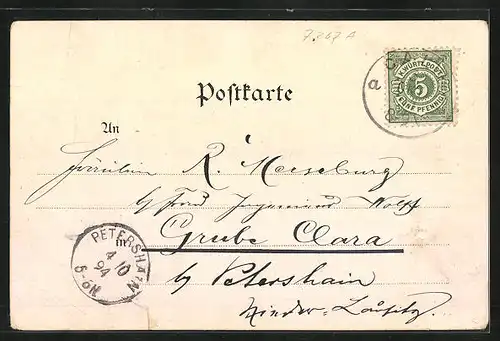 7.267 A
Postkarte
K. WÜRTT. POST
5
FÜNF PFENNIG
An
Fräulein R. Merseburg
b/ Frau Ingenieur Wolff
in
Grube Clara
by Petershain
Nieder-Lausitz
PETERSHAIN
4 10
94
5-6N